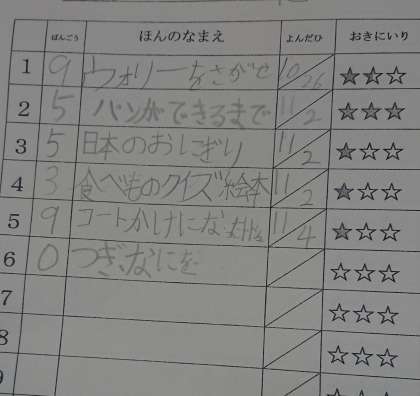 ばんごう ほんのなまえ よんだひ おきにいり
1 9 ウォリーをさがせ 10/26 ★☆☆
2 5 パンができるまで 11/2 ★★★
3 5 日本のおにぎり 11/2 ★☆☆
4 3 食べものクイズ絵本 11/2 ★☆☆
5 9 コートかけになった 11/4 ★☆☆
6 0 つぎ、なにを ☆☆☆
7 ☆☆☆
8 ☆☆☆